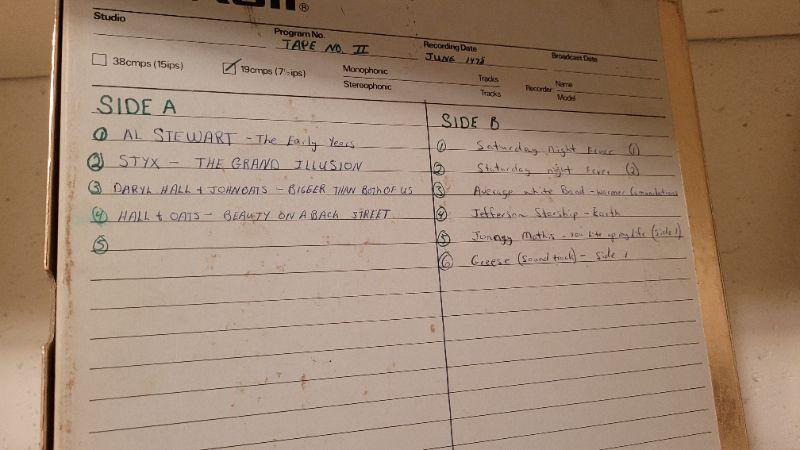 ®
Studio
Program No. TAPE NO. II
Recording Date JUNE 1978
Broadcast Date
38cmps (15ips)
19cmps (7½ips)
Monophonic Tracks
Stereophonic Tracks
Recorder Name
Model
SIDE A
1 AL STEWART - The Early Years
2 STYX - THE GRAND ILLUSION
3 DARYL HALL + JOHN OATS - BIGGER THAN BOTH OF US
4 HALL + OATS - BEAUTY ON A BACK STREET
5
SIDE B
1 Saturday Night Fever (1)
2 Staturday night Fever (2)
3 Average white Band - warmer
4 Jefferson Starship - Earth
5 Mathis - You Lite up my life (Side 1)
6 Greese (Sound track) - Side 1